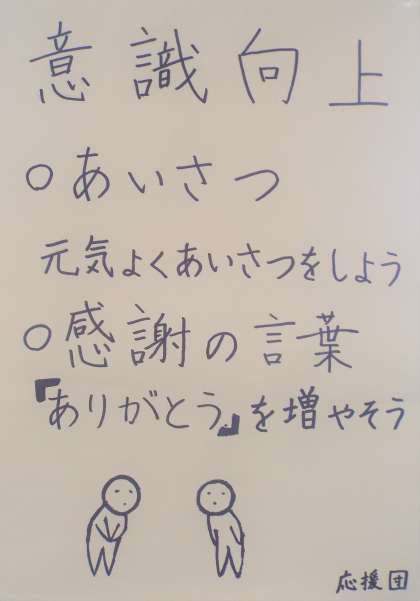 意識向上
○あいさつ
元気よくあいさつをしよう
○感謝の言葉
『ありがとう』を増やそう
応援団